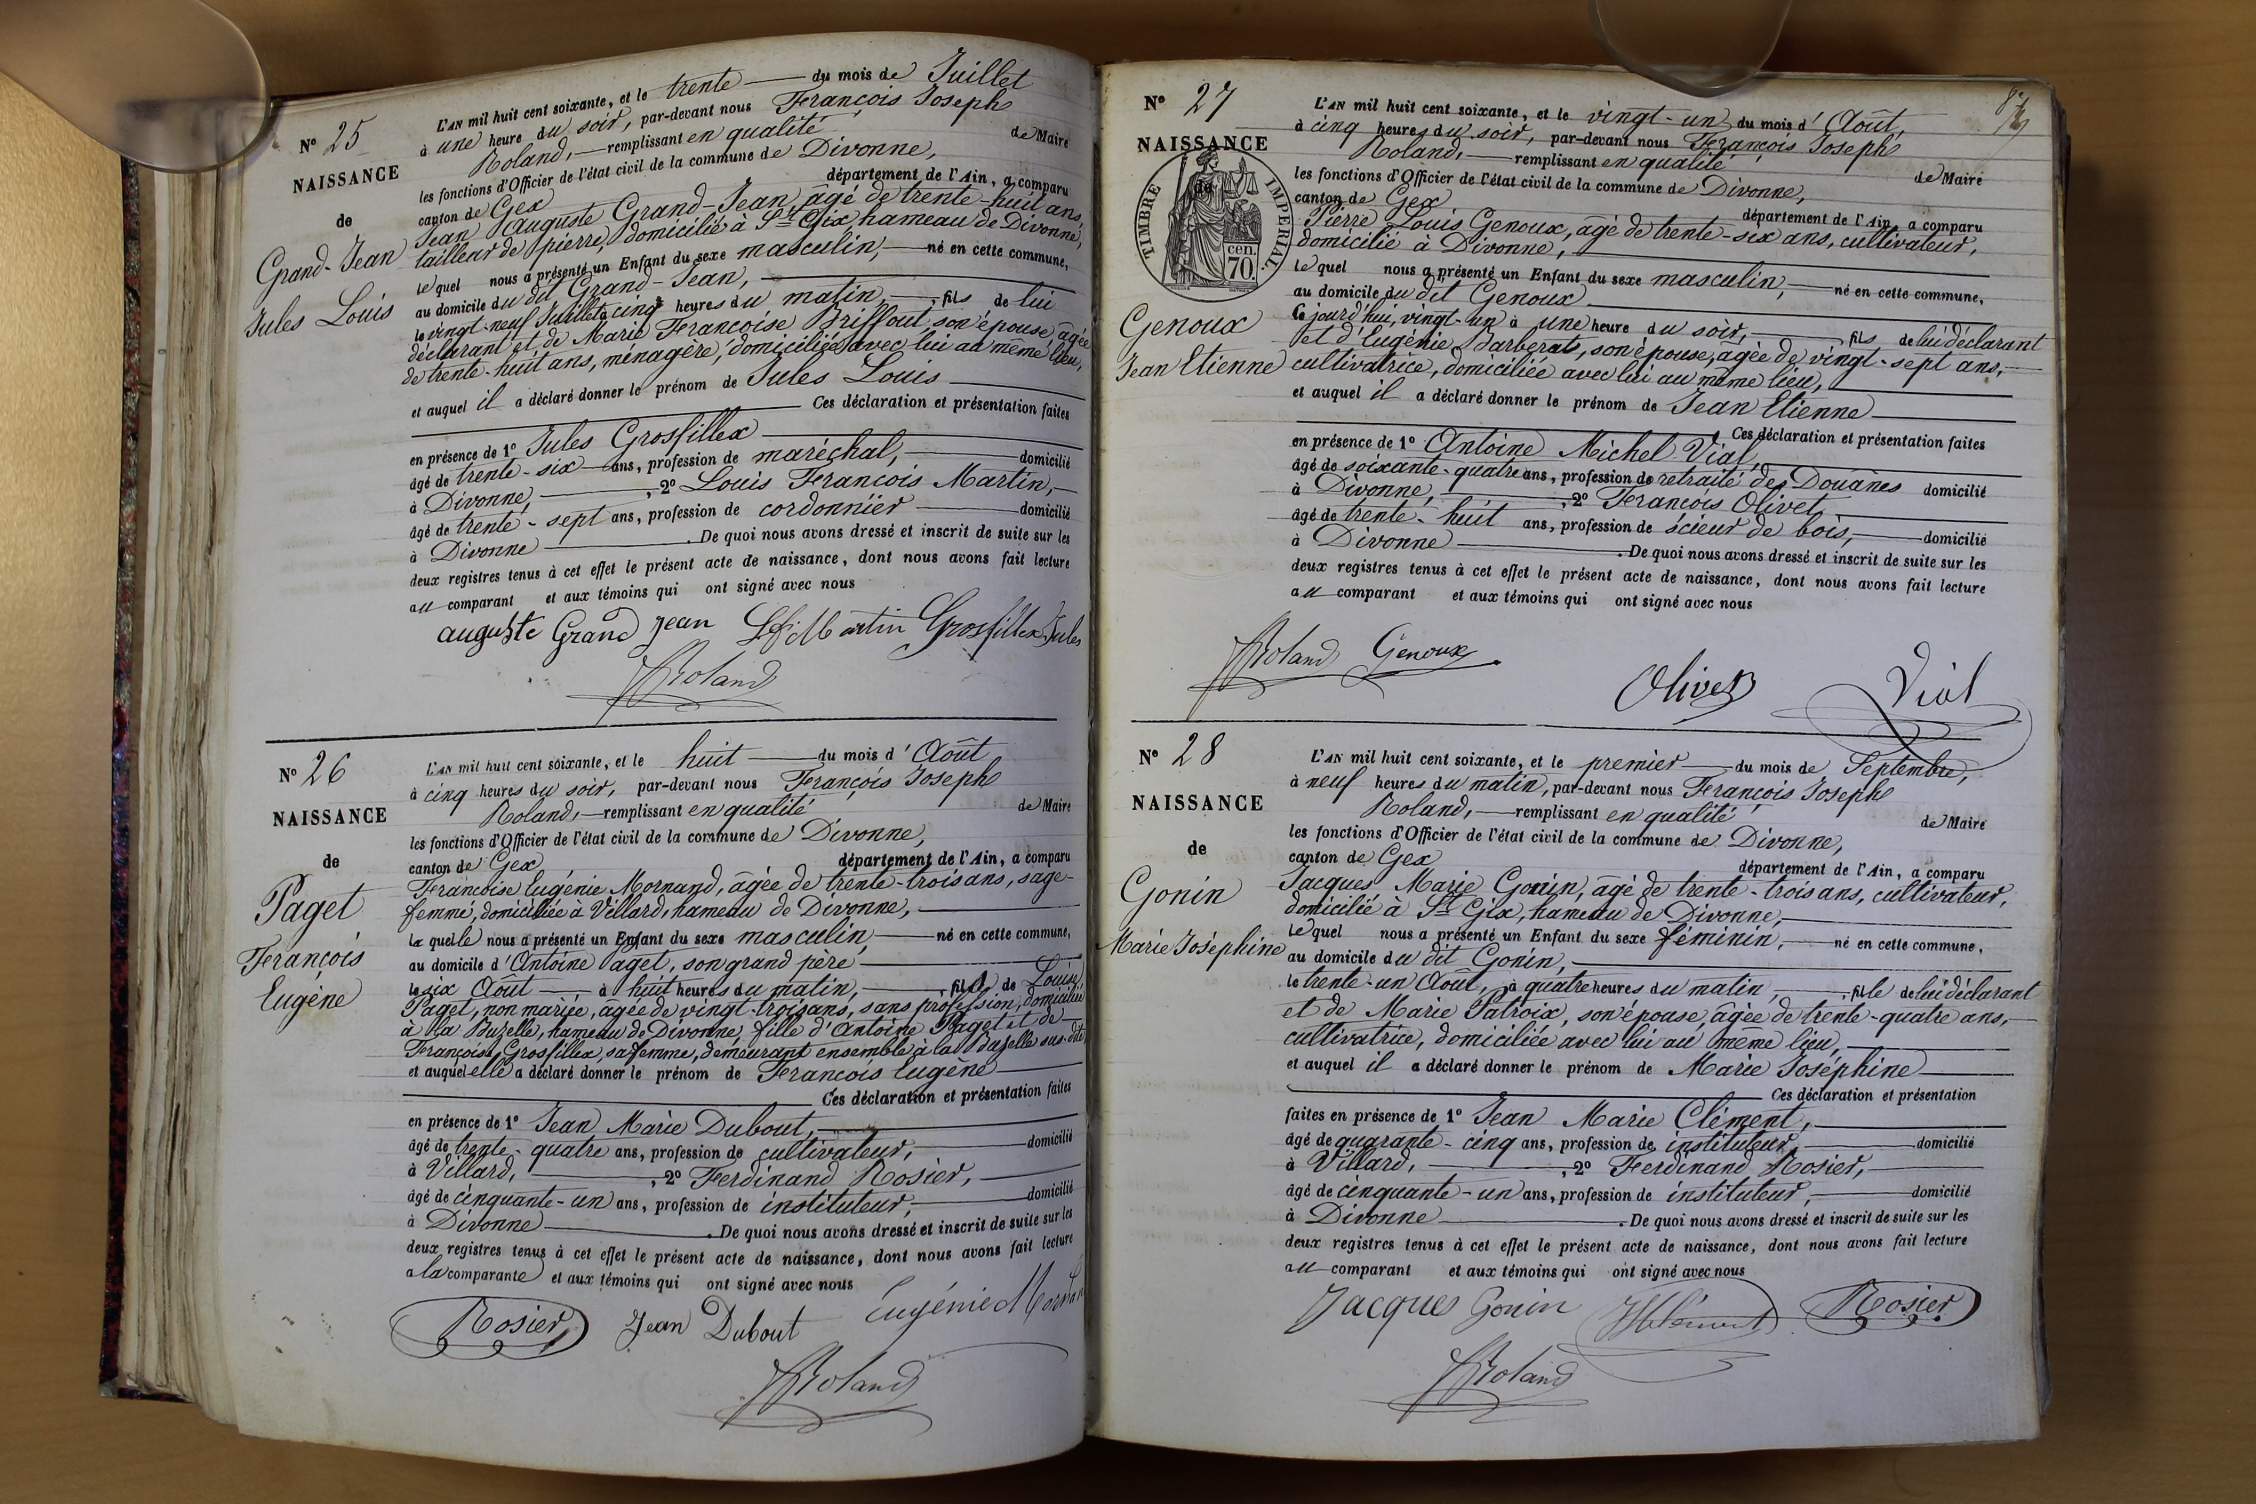 N° 25
NAISSANCE
de
Grand-Jean
Jules Louis
L'AN mil huit cent soixante, et le trente du mois de Juillet
à une heure du soir, par-devant nous François Joseph
Roland, remplissant en qualité de Maire
les fonctions d'Officier de l'état civil de la commune de Divonne,
canton de Gex département de l'Ain, a comparu
Jean Auguste Grand-Jean, âgé de trente-huit ans,
tailleur de pierre, domicilié à St Gix, hameau de Divonne,
lequel nous a présenté un Enfant du sexe masculin, né en cette commune,
au domicile du dit Grand-Jean,
le vingt-neuf Juillet à cinq heures du matin, fils de lui
déclarant et de Marie Françoise Briffout, son épouse, âgée
de trente-huit ans, ménagère, domiciliée avec lui au même lieu,
et auquel il a déclaré donner le prénom de Jules Louis
Ces déclaration et présentation faites
en présence de 1° Jules Grosfillex
âgé de trente-six ans, profession de maréchal, domicilié
à Divonne, , 2° Louis François Martin,
âgé de trente-sept ans, profession de cordonnier domicilié
à Divonne . De quoi nous avons dressé et inscrit de suite sur les
deux registres tenus à cet effet le présent acte de naissance, dont nous avons fait lecture
au comparant et aux témoins qui ont signé avec nous
auguste Grand jean Martin Grosfillex Jules
Roland
N° 26
NAISSANCE
de
Paget
François
Eugène
L'AN mil huit cent soixante, et le huit du mois d'Août
à cinq heures du soir, par-devant nous François Joseph
Roland, remplissant en qualité de Maire
les fonctions d'Officier de l'état civil de la commune de Divonne,
canton de Gex département de l'Ain, a comparu
Françoise Eugénie Mornand, âgée de trente-trois ans, sage-
femme, domiciliée à Villard, hameau de Divonne,
laquelle nous a présenté un Enfant du sexe masculin, né en cette commune,
au domicile d'Antoine Paget, son grand père
le six Août à huit heures du matin, , fils de Louise
Paget, non mariée, âgée de vingt-trois ans, sans profession, domiciliée
à la Buzelle, hameau de Divonne, fille d'Antoine Paget et de
Françoise Grosfillex, sa femme, demeurant ensemble à la Buzelle sus-dite
et auquel elle a déclaré donner le prénom de François Eugène
Ces déclaration et présentation faites
en présence de 1° Jean Marie Dubout,
âgé de trente-quatre ans, profession de cultivateur, domicilié
à Villard, , 2° Ferdinand Rosier,
âgé de cinquante-un ans, profession de instituteur, domicilié
à Divonne . De quoi nous avons dressé et inscrit de suite sur les
deux registres tenus à cet effet le présent acte de naissance, dont nous avons fait lecture
a la comparante et aux témoins qui ont signé avec nous
Rosier Jean Dubout Eugénie Mornan
Roland
N° 27
NAISSANCE
de
TIMBRE IMPERIAL
cen.
70.
Genoux
Jean Etienne
L'AN mil huit cent soixante, et le vingt-un du mois d'Août,
à cinq heures du soir, par-devant nous François Joseph
Roland, remplissant en qualité de Maire
les fonctions d'Officier de l'état civil de la commune de Divonne,
canton de Gex département de l'Ain, a comparu
Pierre Louis Genoux, âgé de trente-six ans, cultivateur,
domicilié à Divonne,
lequel nous a présenté un Enfant du sexe masculin, né en cette commune,
au domicile du dit Genoux
Ce jourd'hui, vingt-un à une heure du soir, fils de lui déclarant
et d'Eugénie Barberat, son épouse, âgée de vingt-sept ans,
cultivatrice, domiciliée avec lui au même lieu,
et auquel il a déclaré donner le prénom de Jean Etienne
Ces déclaration et présentation faites
en présence de 1° Antoine Michel Vial,
âgé de soixante-quatre ans, profession de retraité des Douanes domicilié
à Divonne, , 2° François Olivet,
âgé de trente-huit ans, profession de scieur de bois, domicilié
à Divonne . De quoi nous avons dressé et inscrit de suite sur les
deux registres tenus à cet effet le présent acte de naissance, dont nous avons fait lecture
au comparant et aux témoins qui ont signé avec nous
Roland Genoux
Olivet Vial
N° 28
NAISSANCE
de
Gonin
Marie Joséphine
L'AN mil huit cent soixante, et le premier du mois de Septembre,
à neuf heures du matin, par-devant nous François Joseph
Roland, remplissant en qualité de Maire
les fonctions d'Officier de l'état civil de la commune de Divonne,
canton de Gex département de l'Ain, a comparu
Jacques Marie Gonin, âgé de trente-trois ans, cultivateur,
domicilié à St Gix, hameau de Divonne,
lequel nous a présenté un Enfant du sexe féminin, né en cette commune,
au domicile du dit Gonin,
le trente-un Août, à quatre heures du matin, , fille de lui déclarant
et de Marie Patroix, son épouse, âgée de trente-quatre ans,
cultivatrice, domiciliée avec lui au même lieu,
et auquel il a déclaré donner le prénom de Marie Joséphine
Ces déclaration et présentation
faites en présence de 1° Jean Marie Clément,
âgé de quarante-cinq ans, profession de instituteur, domicilié
à Villard, , 2° Ferdinand Rosier,
âgé de cinquante-un ans, profession de instituteur, domicilié
à Divonne . De quoi nous avons dressé et inscrit de suite sur les
deux registres tenus à cet effet le présent acte de naissance, dont nous avons fait lecture
au comparant et aux témoins qui ont signé avec nous
Jacques Gonin Clément Rosier
Roland